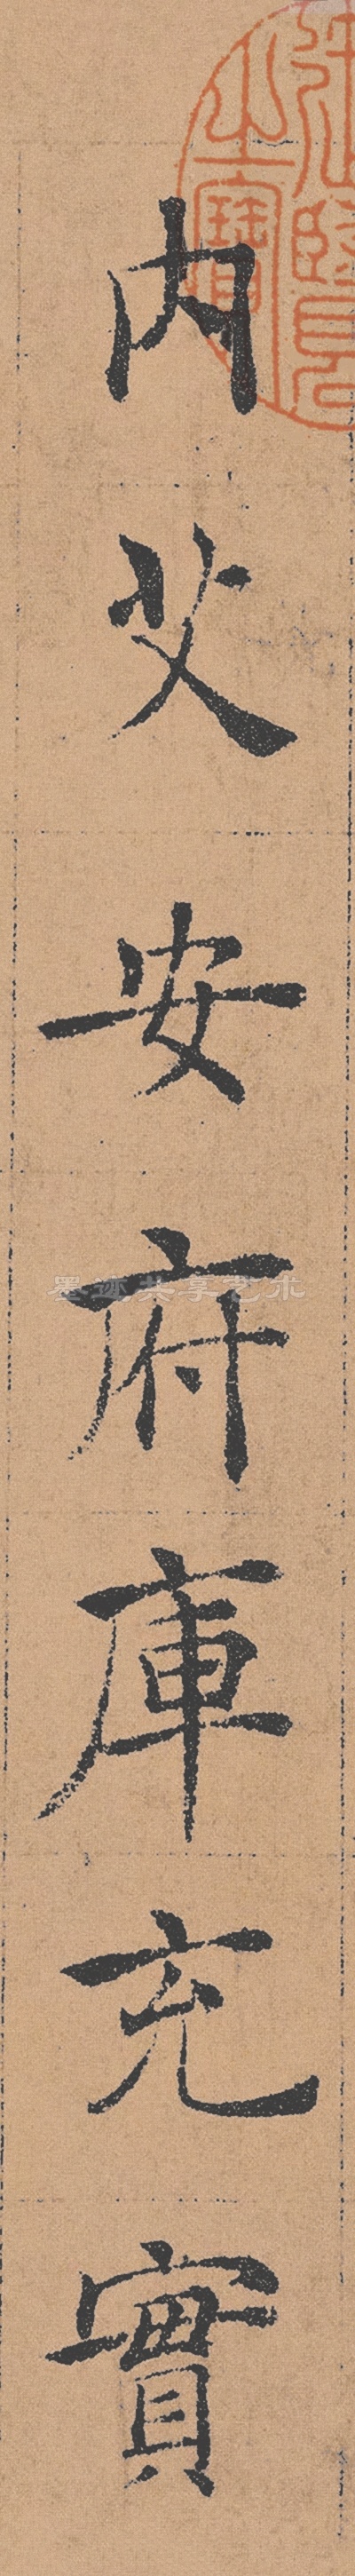 内艾安府庫充實
墨迹共享艺术